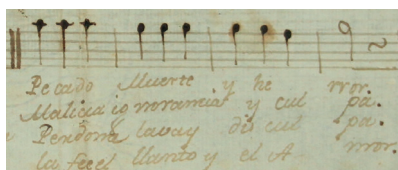 Pecado Muerte y he rror.
Malicia ignorancia y cul pa.
Perdona lava y dis cul pa.
la fee el llanto y el A mor.